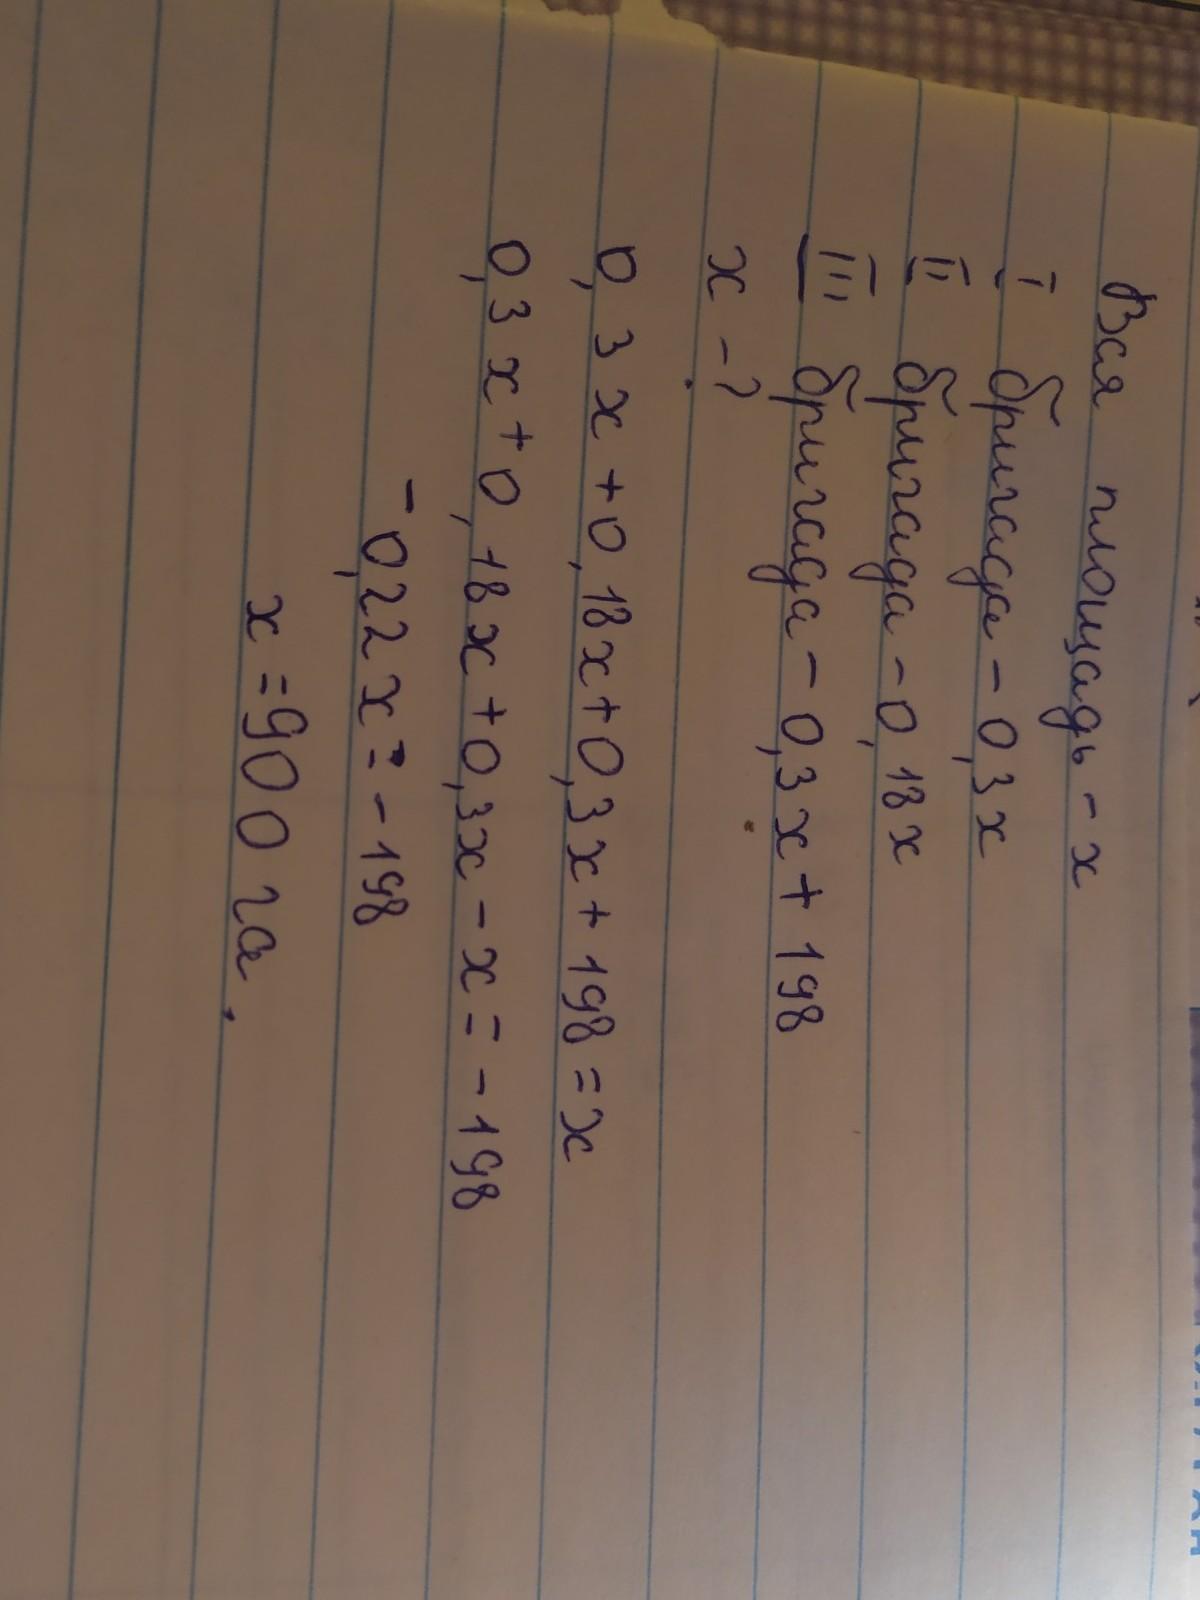 Вся площадь - х
I бригада - 0,3х
II бригада - 0,18х
III бригада - 0,3х + 198
х - ?
0,3х + 0,18х + 0,3х + 198 = х
0,3х + 0,18х + 0,3х - х = - 198
- 0,22х = - 198
х = 900 га.